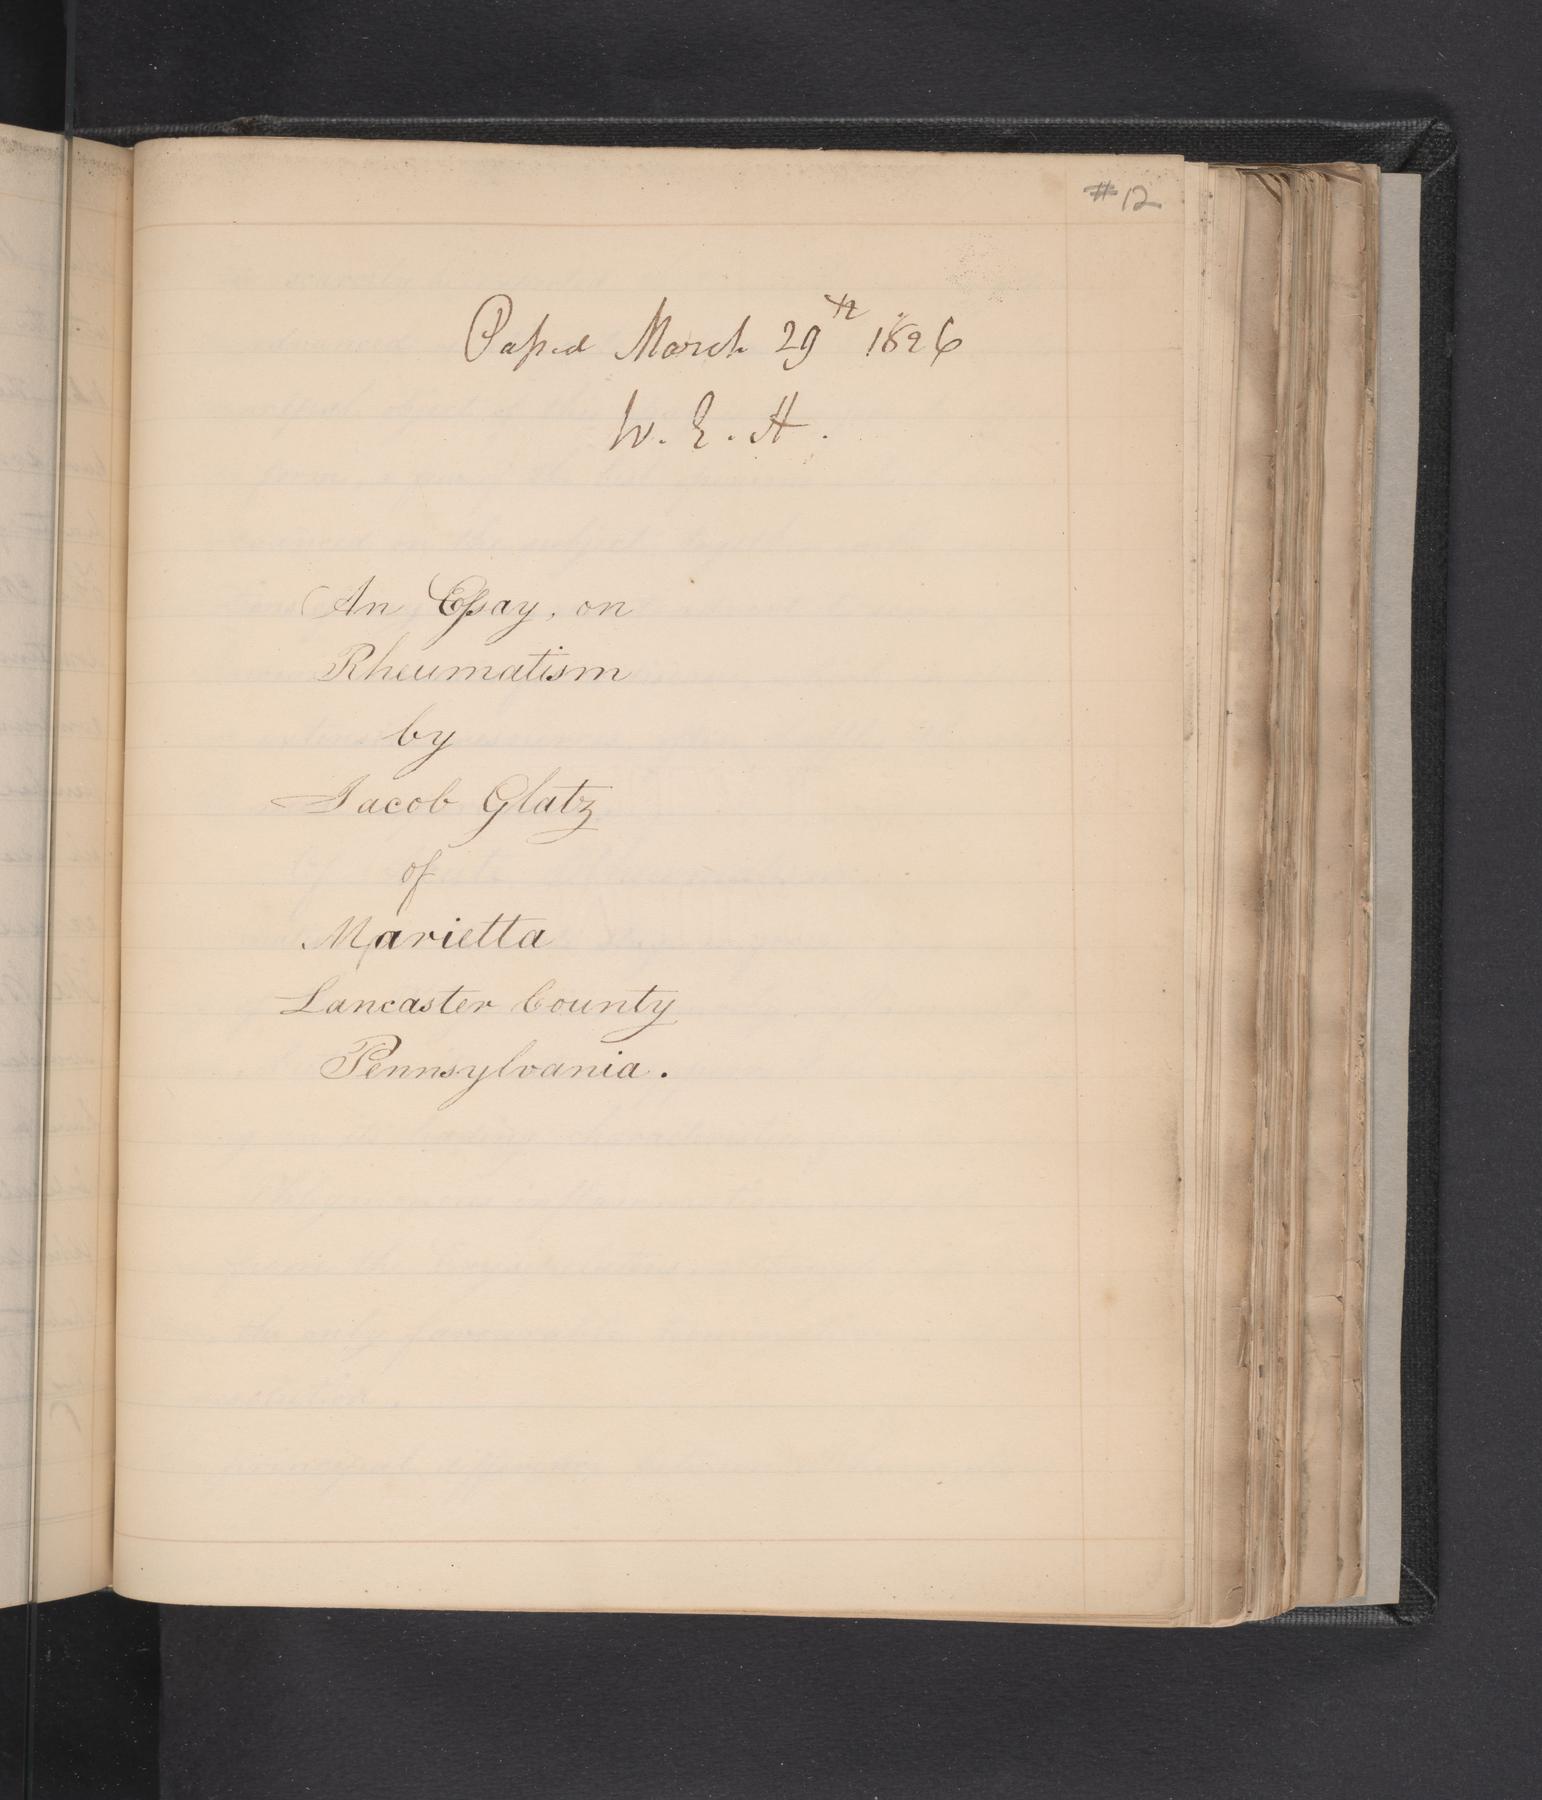 #12
Passed March 29th 1826
W. E. H.
An Essay, on
Rheumatism
by
Jacob Glatz
of
Marietta
Lancaster County
Pennsylvania.